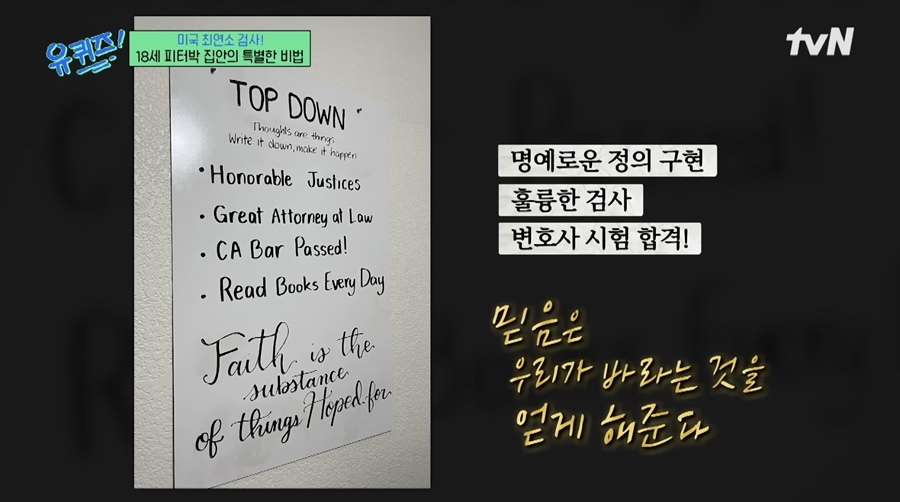 유퀴즈!
미국 최연소 검사!
18세 피터박 집안의 특별한 비법
tvN
TOP DOWN
Thoughts are things
Write it down, make it happen
• Honorable Justices
• Great Attorney at Law
• CA Bar Passed!
• Read Books Every Day
Faith is the
substance
of things Hoped for
명예로운 정의 구현
훌륭한 검사
변호사 시험 합격!
믿음은
우리가 바라는 것을
얻게 해준다